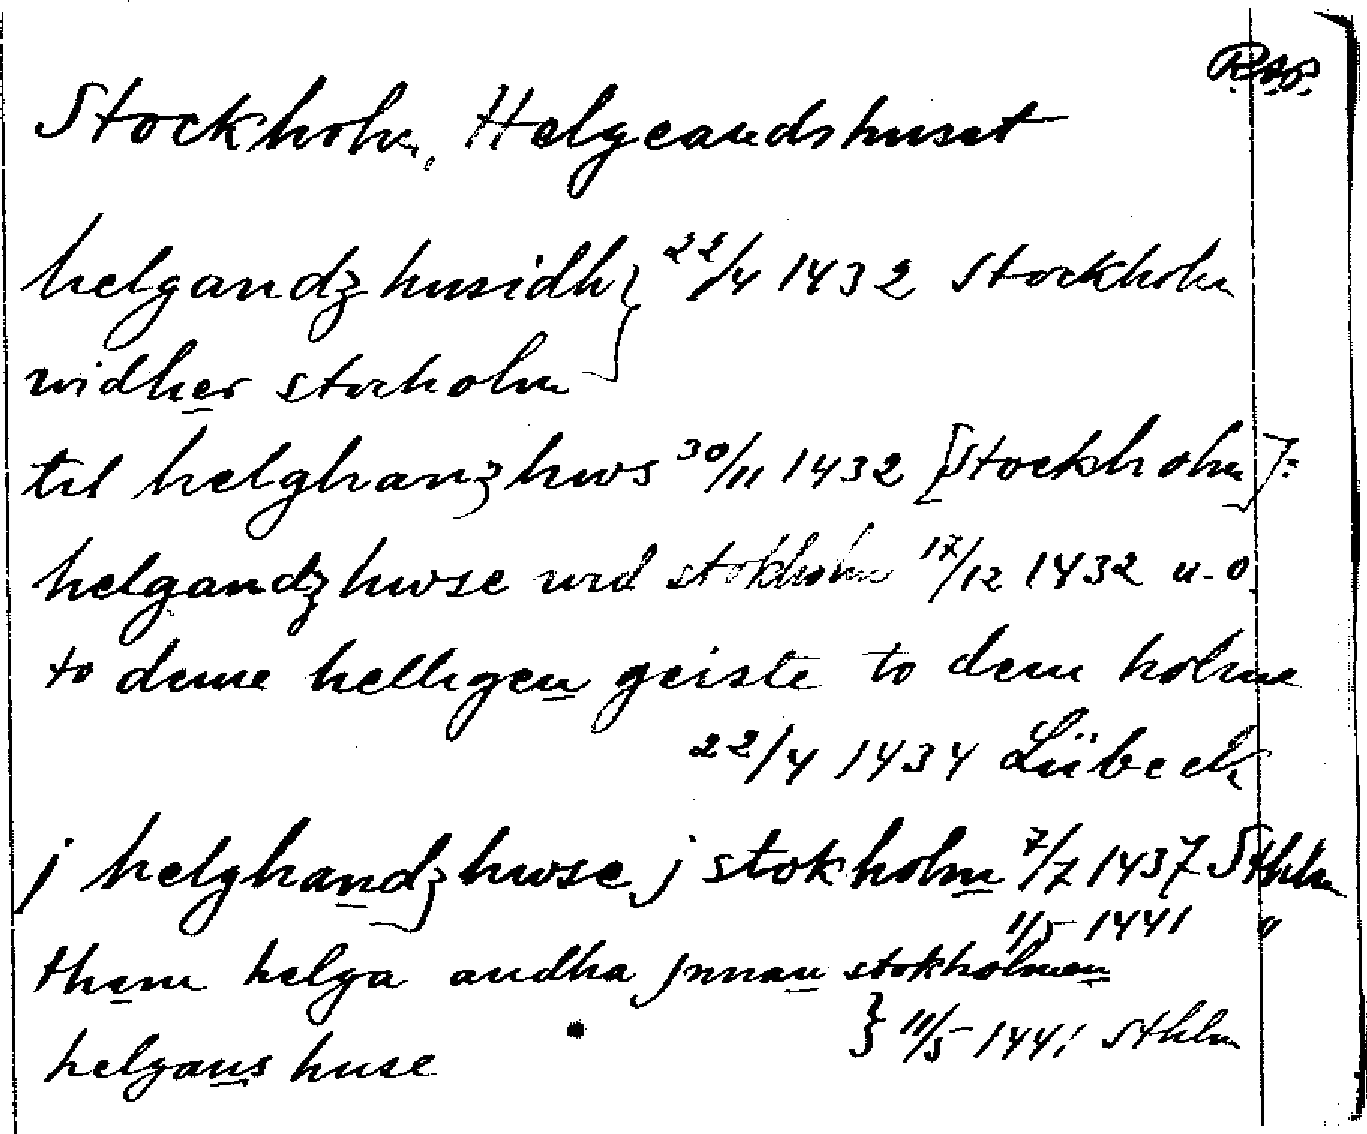 RAP.
Stockholm, Helgeandshuset
helgandz husidh } 22/4 1432 Stockholm
widher stocholm
til helghanz hws 30/11 1432 [Stockholm].
helgandz hwse wid stokholm 17/12 1432 u.o.
to deme helligen geiste to dem holme
22/4 1434 Lübeck
j helghandz hwse j stokholm 7/7 1437 Sthlm
11/5 1441 "
them helga andha jnnan stokholmen
helgans huse } 11/5 1441 Sthlm